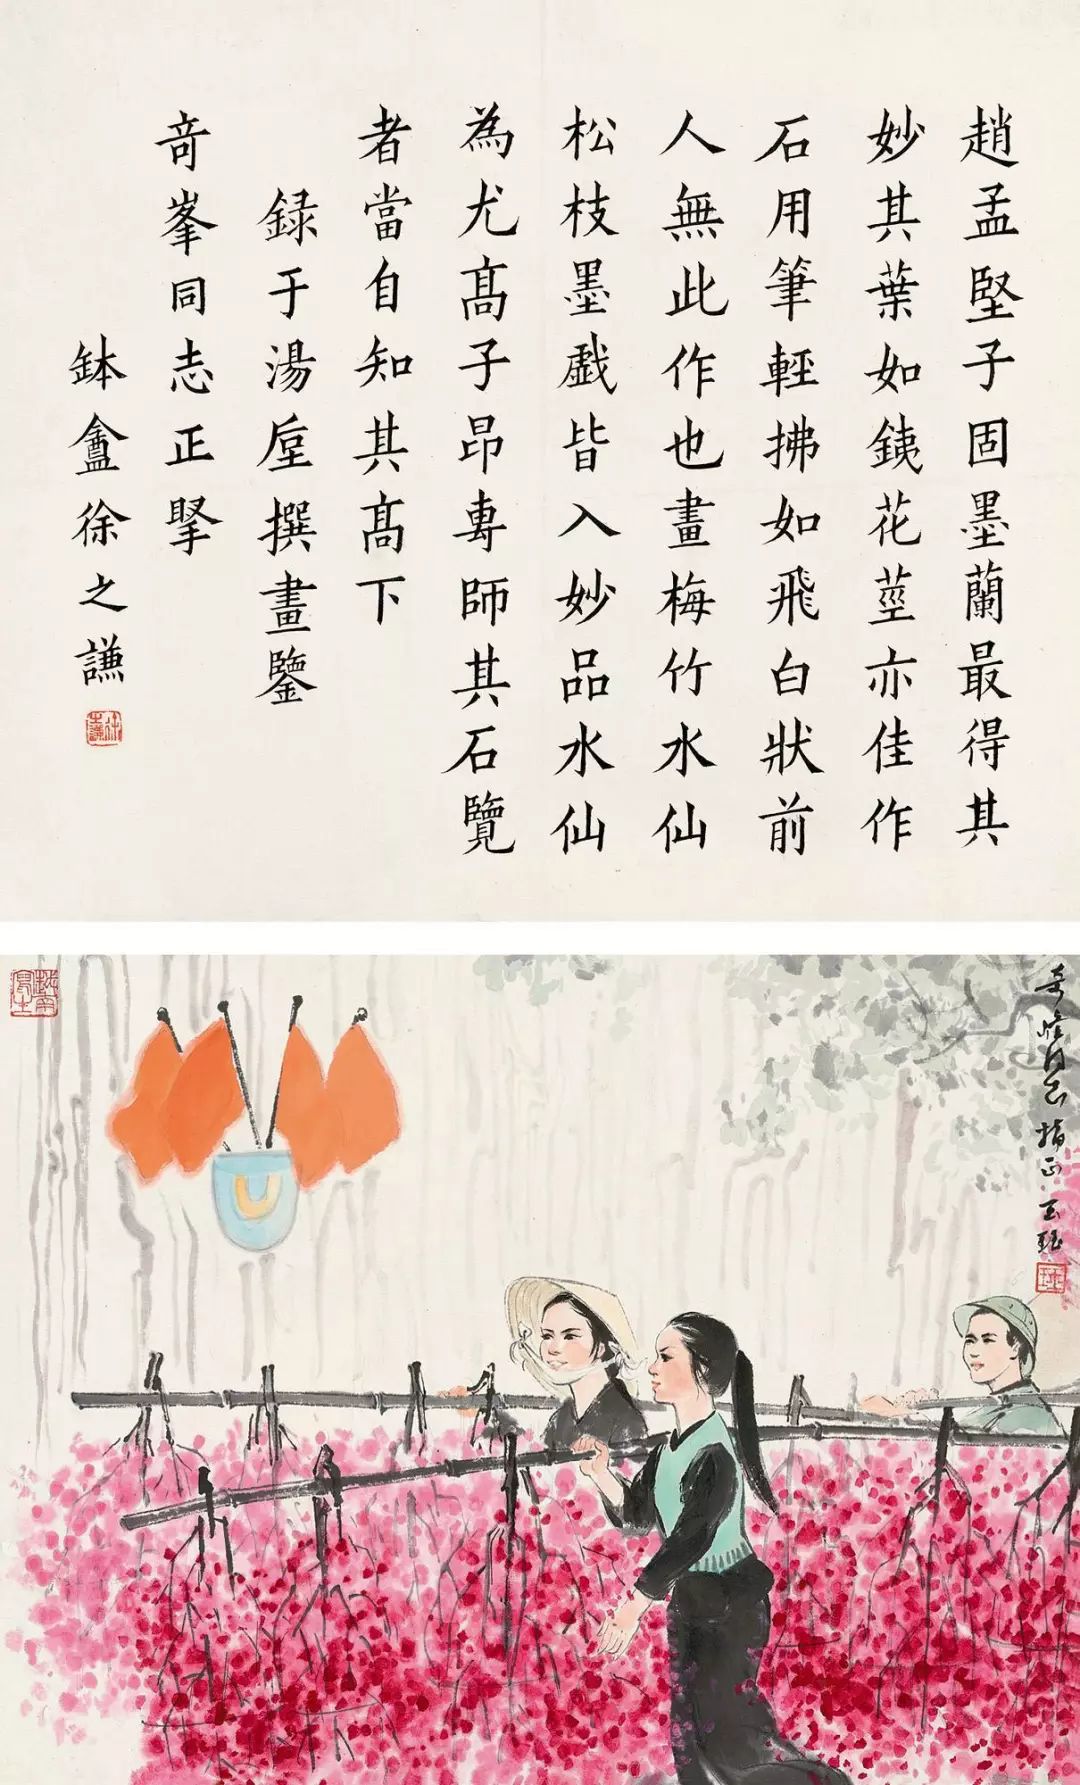 趙孟堅子固墨蘭最得其
妙其葉如鐵花莖亦佳作
石用筆輕拂如飛白狀前
人無此作也畫梅竹水仙
松枝墨戲皆入妙品水仙
為尤高子昂專師其石覽
者當自知其高下
録于湯垕撰畫鑒
奇峯同志正擥
鉢盦徐之謙
徐之謙
奇峰同志指正 玉珏
越南寫生